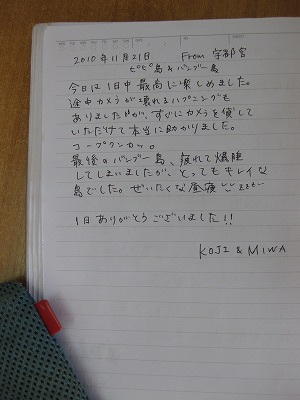 2010年11月21日 From 宇都宮
ピピ島&バンブー島
今日は1日中最高に楽しめました。
途中カメラが壊れるハプニングも
ありましたが、すぐにカメラを貸して
いただけて本当に助かりました。
コープクンカッ。
最後のバンブー島、疲れて爆睡
してしまいましたが、とってもキレイな
島でした。ぜいたくな昼寝
1日ありがとうございました!!
KOJI & MIWA